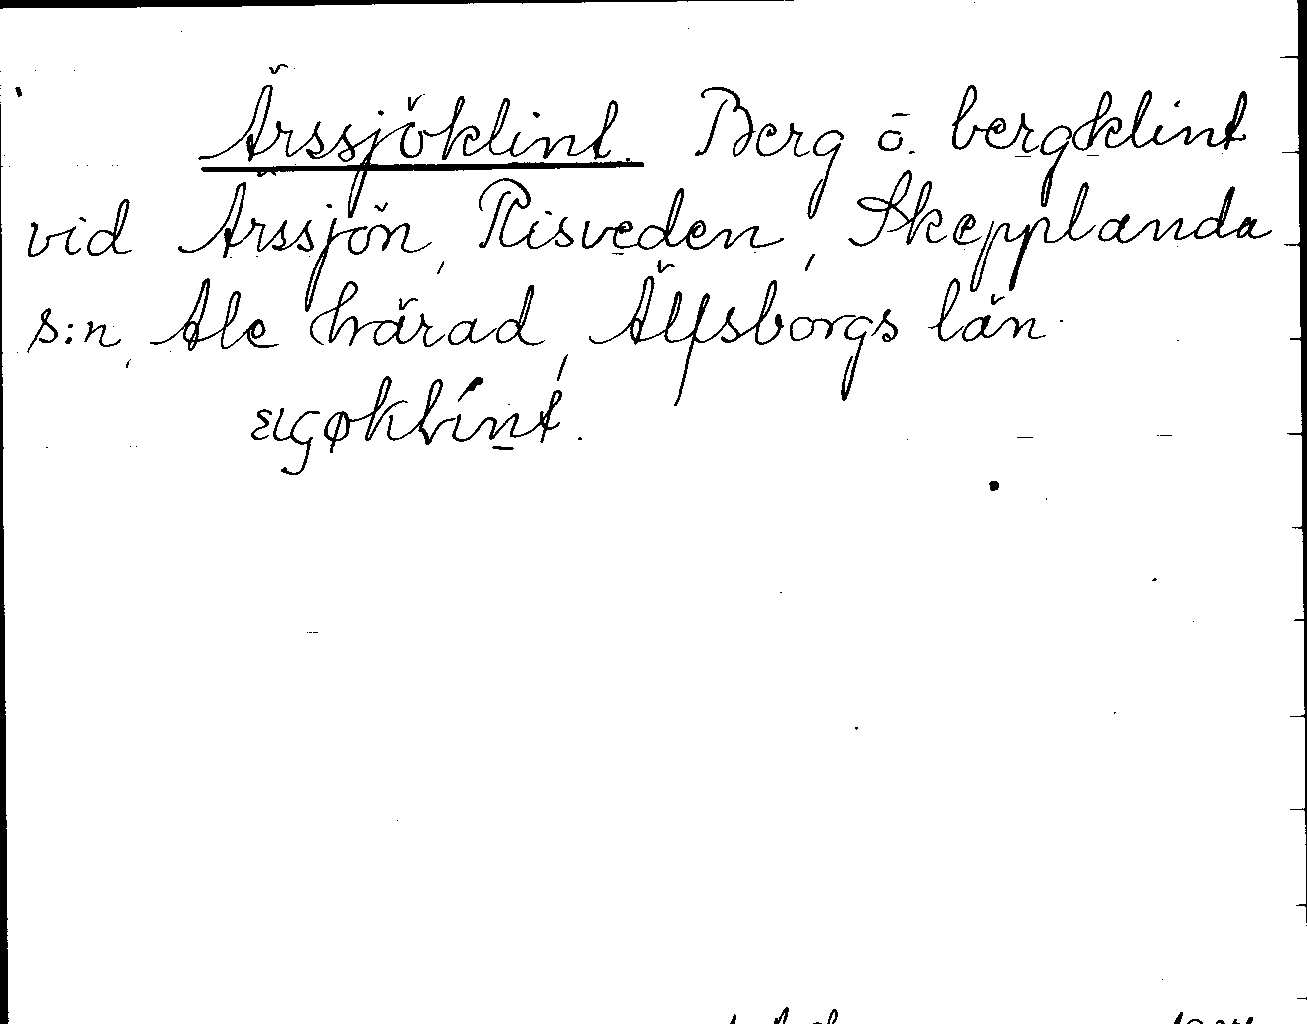 Ärssjöklint. Berg o. bergklint
vid Ärssjön, Risveden, Skepplanda
s:n, Ale härad, Älfsborgs län.